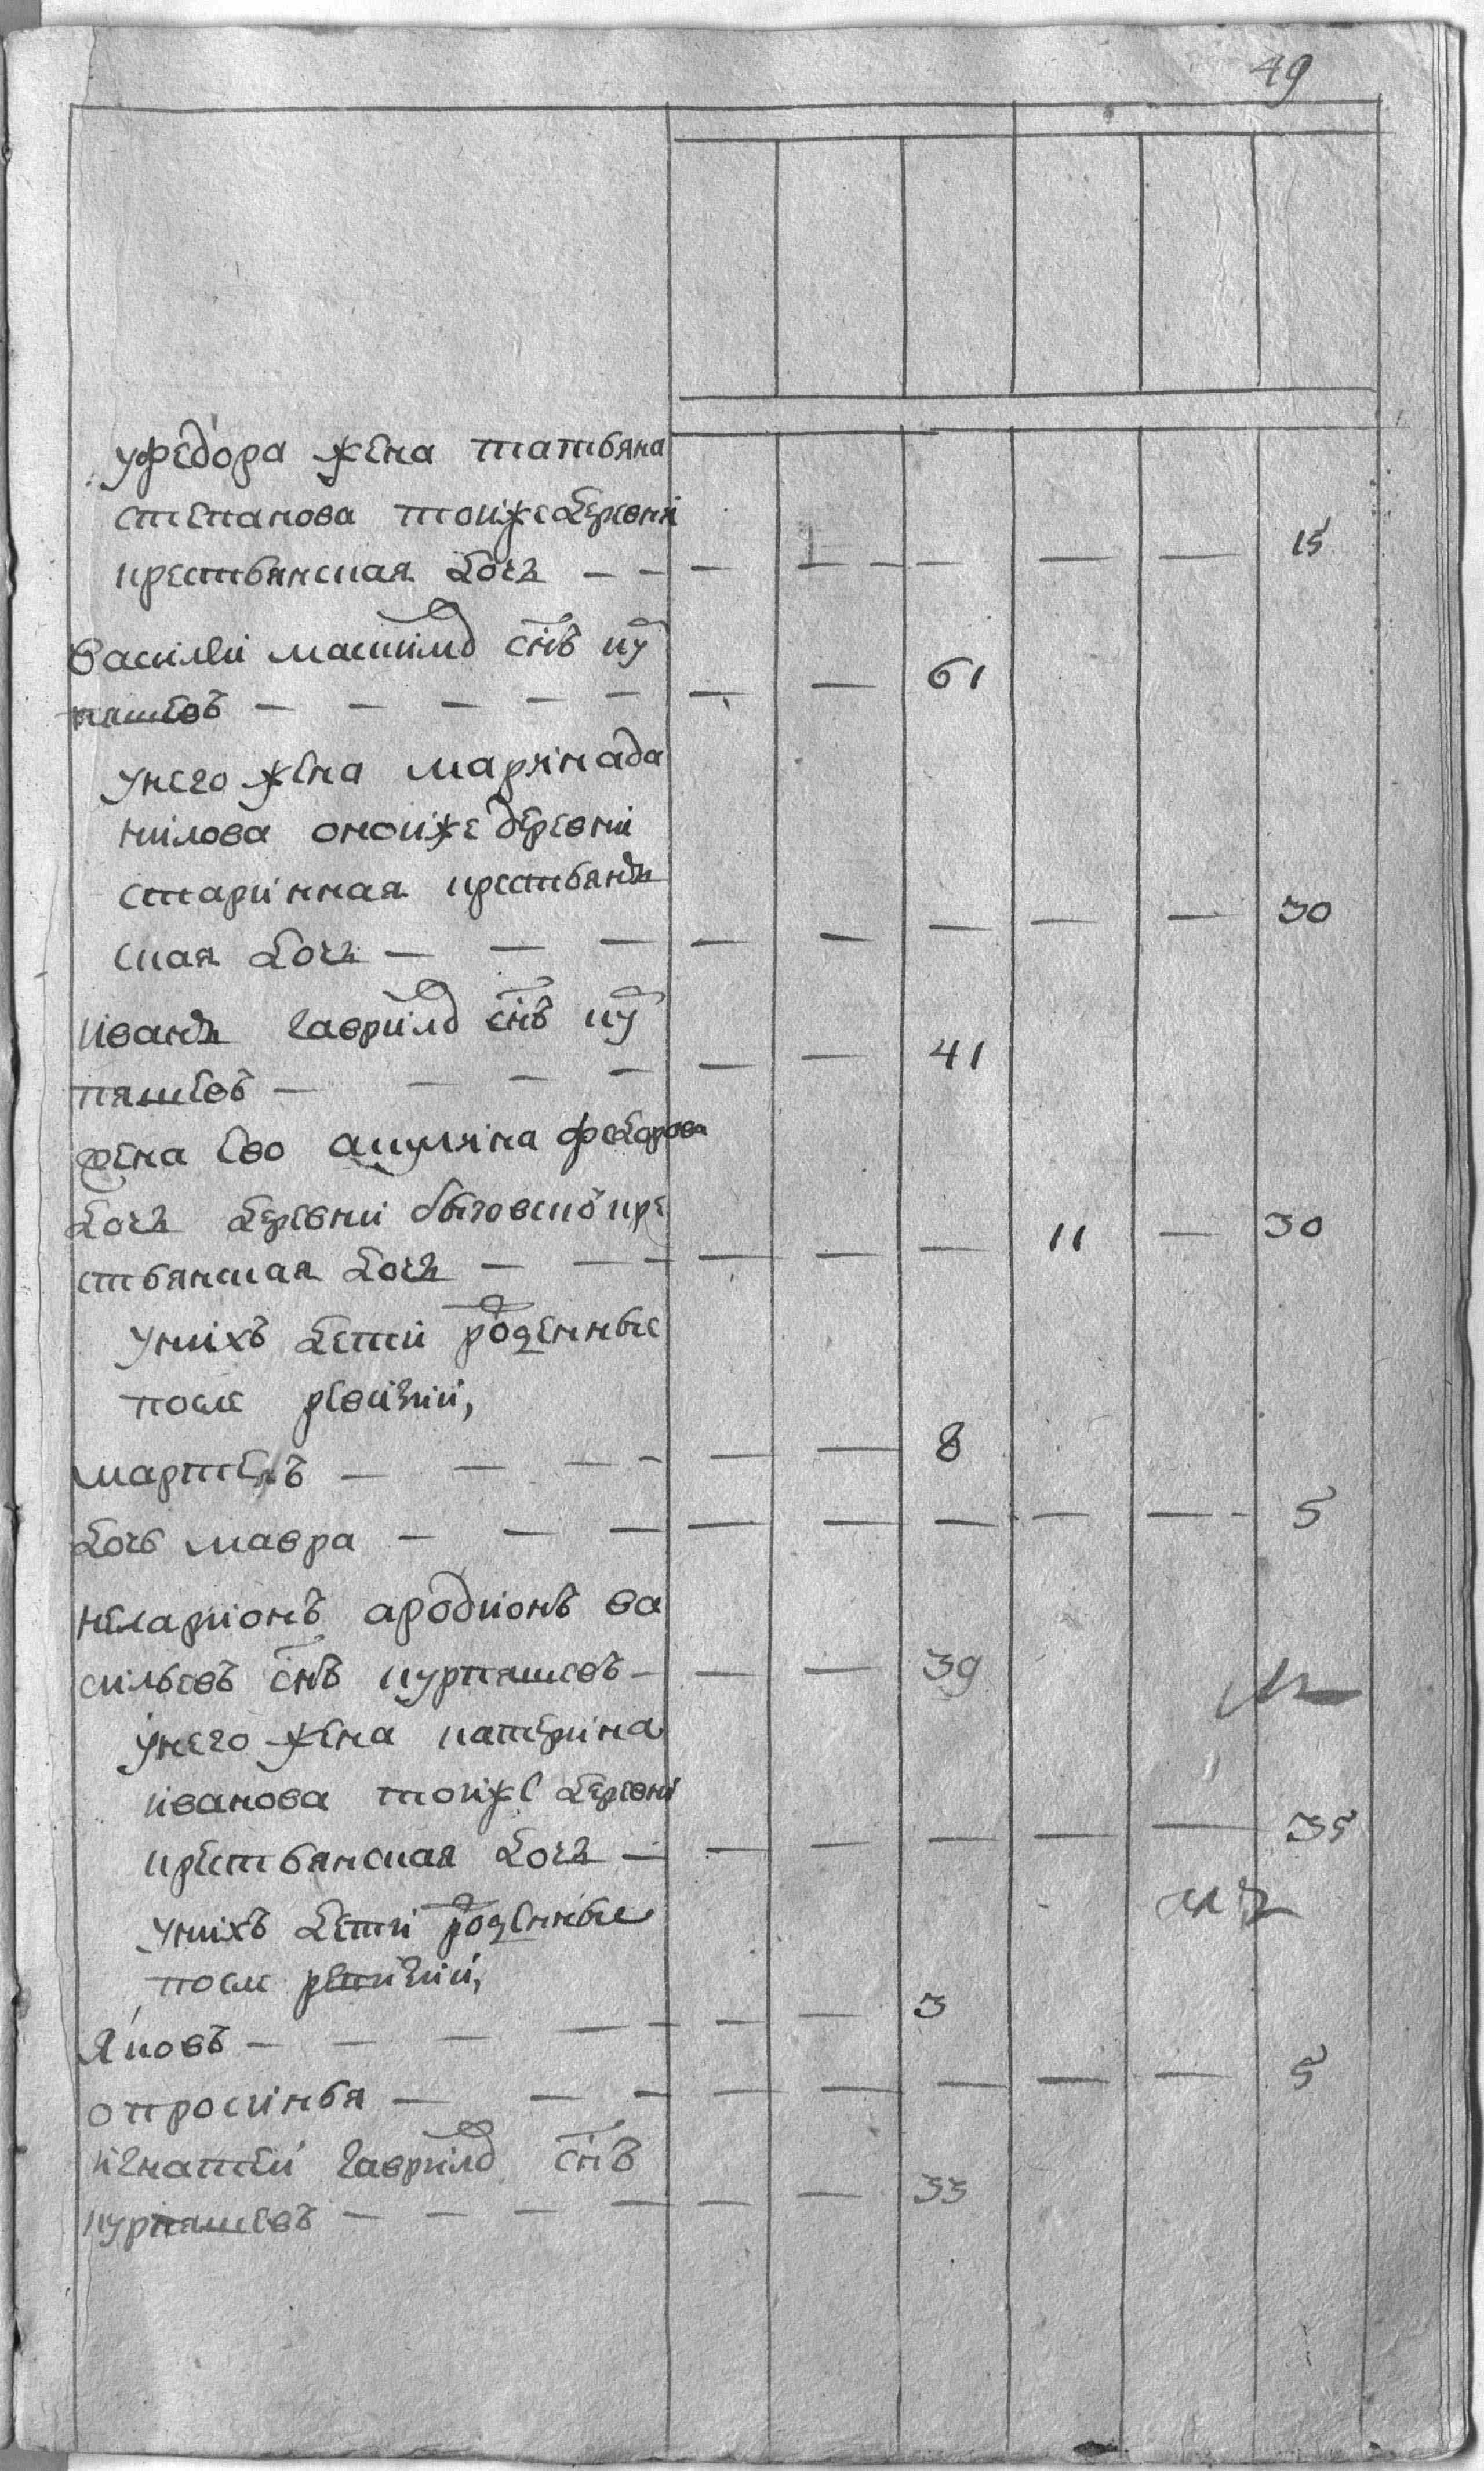 49
уфедора жена татьяна
степанова тойже деревни
крестьянская дочь — — — — — — — — 15
василей максимо снъ ку
пяшевъ — — — — — — — 61
унего жена марьина да
нилова оной же деревни
старинная крестьянъ
ская дочь — — — — — — — — 30
иванъ гаврило снъ ку
пяшевъ — — — — — — 41
жена ево акулина федорова
дочь деревни кре
стьянская дочь — — — — — — 11 — 30
унихъ дети рожденные
после ревизии,
— — — — — — 8
дочь мавра — — — — — — — — 5
иларионъ ародионъ ва
сильевъ снъ курпяшевъ — — — 39
унего жена катерина
иванова тойже деревни
крестьянская дочь — — — — — — 35
унихъ дети рожденные
после ревизии,
яковъ — — — — — — — 3
опросинья — — — — — — — — 5
игнатей гаврило снъ
курпяшевъ — — — — — — 33